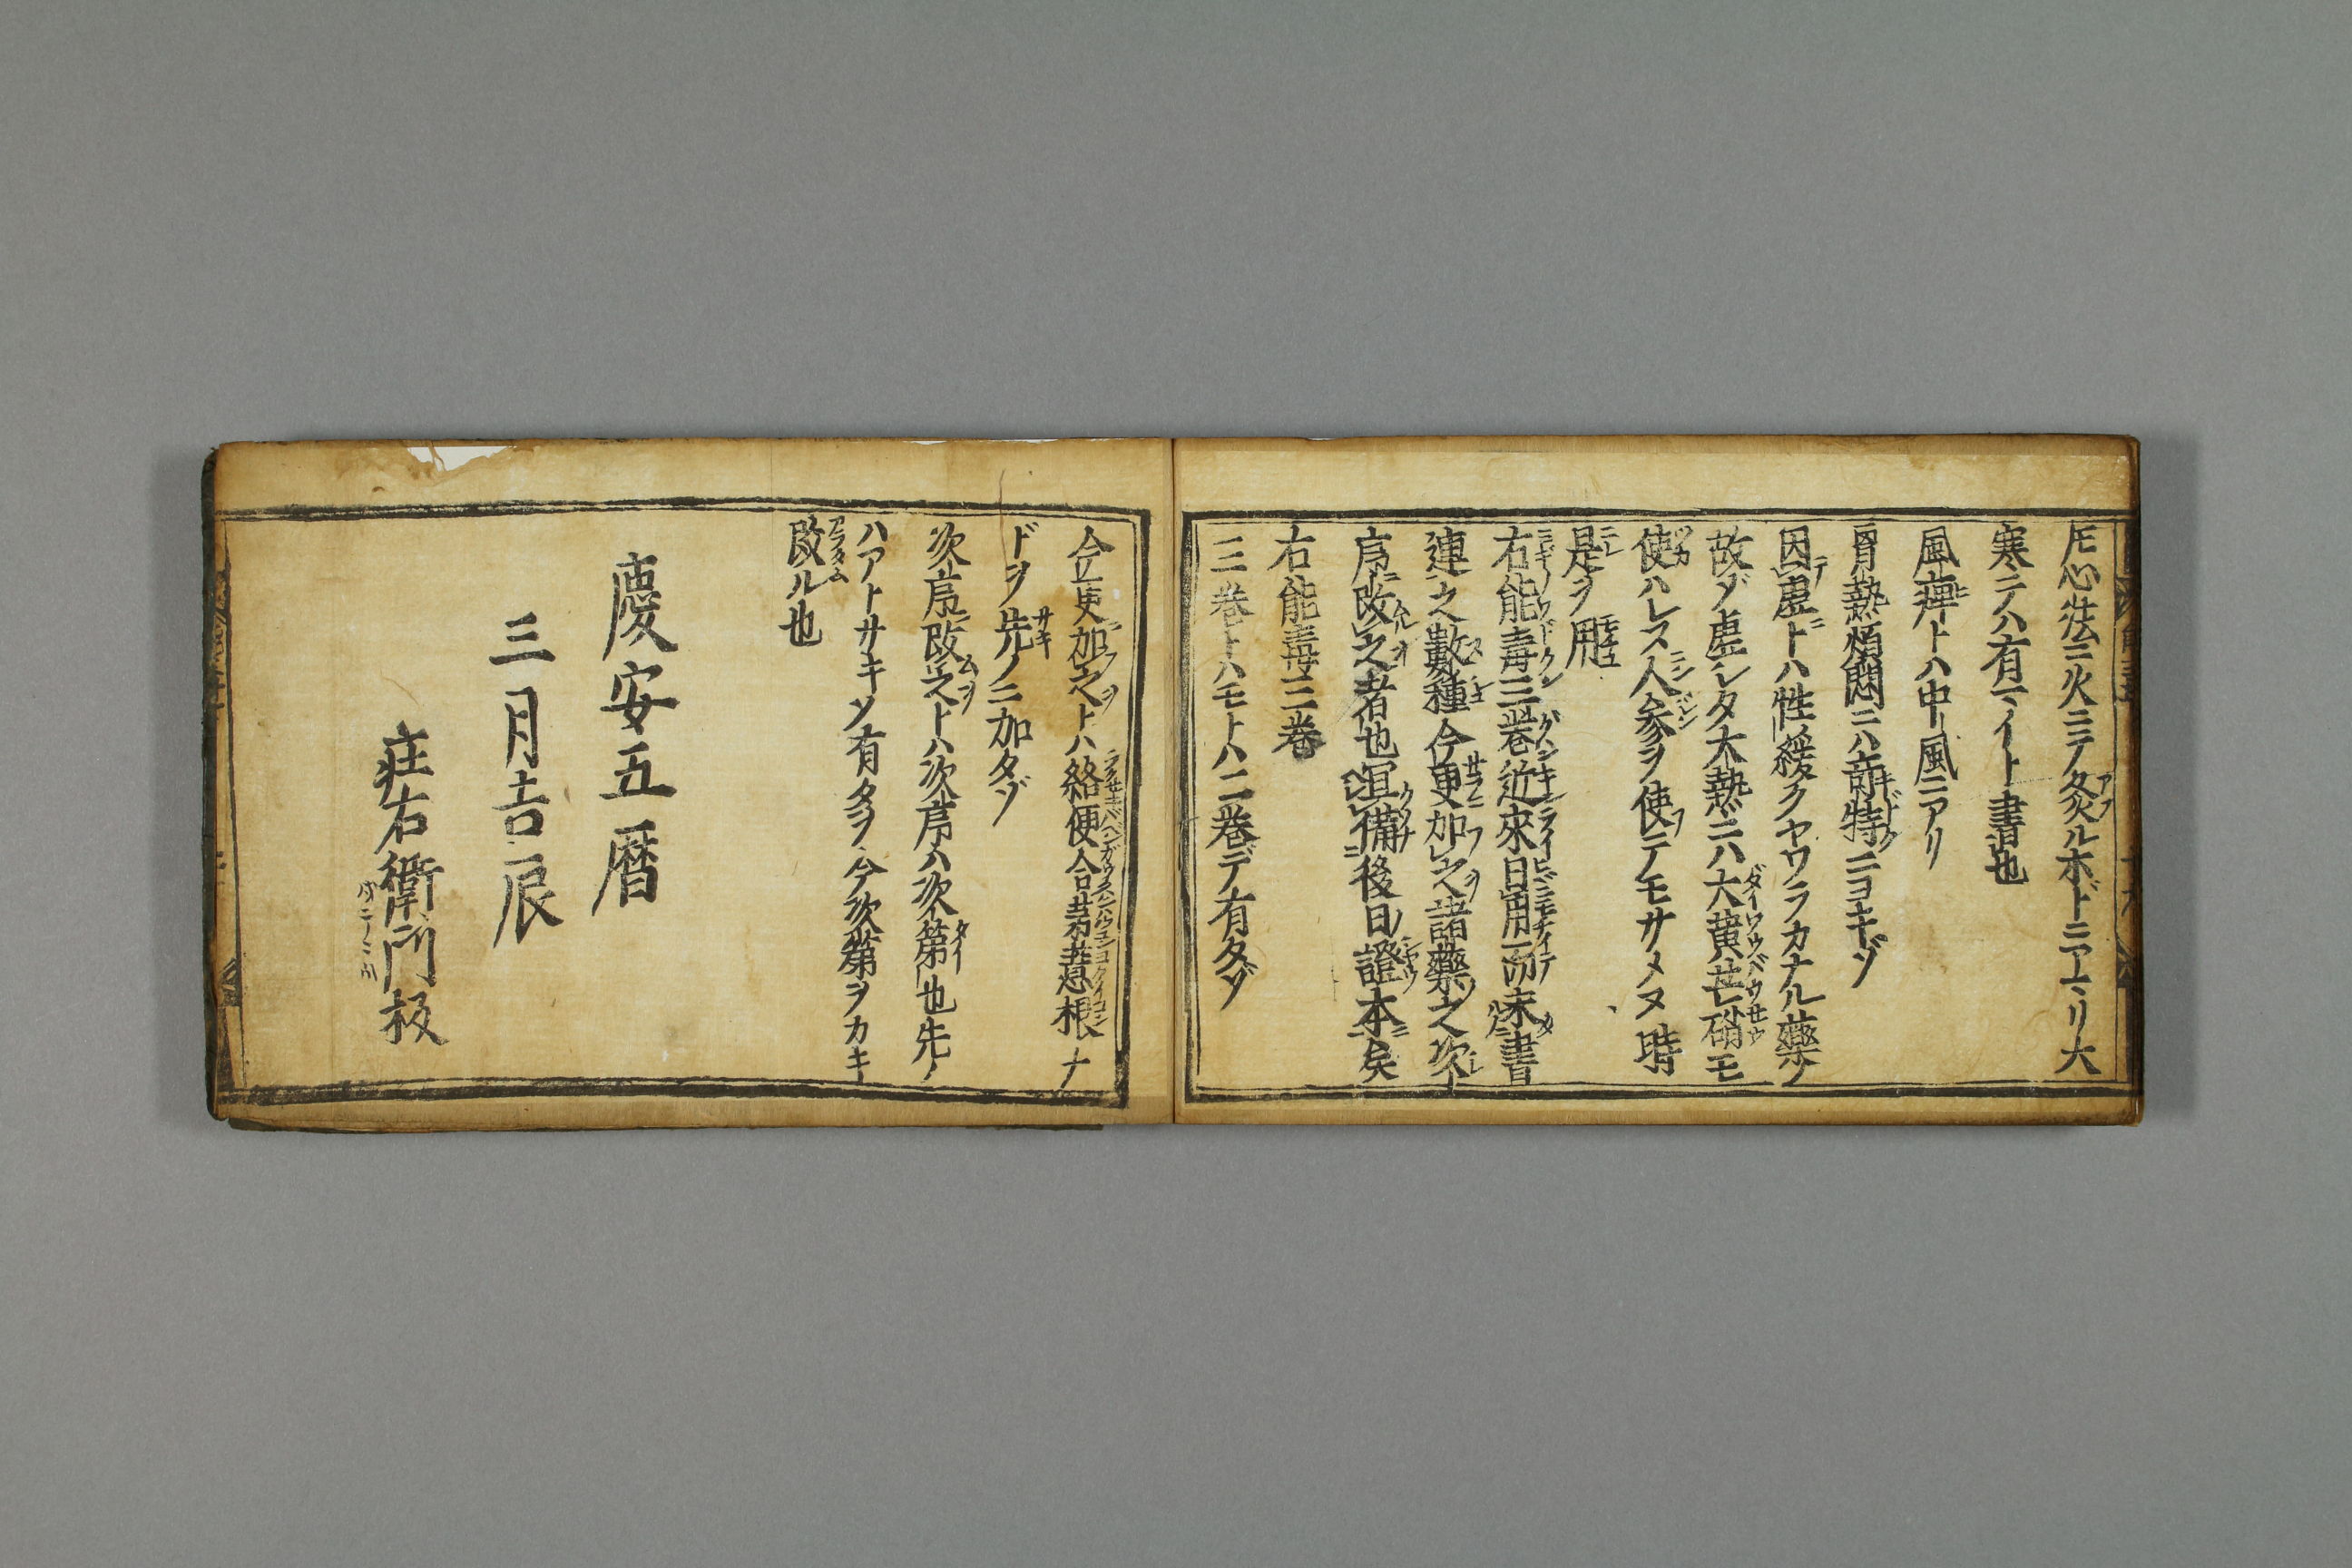 圧心法ニ火ニテ灸ル木ドニアヽリ大
寒ニテハ有マイト書也
風痺トハ中風ニアリ
胃熱煩悶ニハ竒特ニヨキゾ
因虚トハ性緩クヤワラカナル藥ノ
故ゾ虚シタ大熱ニハ大黄芒硝モ
使ハレス人参ヲ使テモサメヌ時
是ヲ用
右能毒三巻近來日用而未書
連之數種今更加之諸藥之次
序改之者也冝備後日證本矣
右能毒三巻
三巻トハモトハ二巻デ有タゾ
今更加之トハ絡便合
ドヲ先ノニ加タゾ
次序改之トハ次序ハ次第也先ノ
ハアトサキソ有タヲ今次第ヲカキ
改ル也
慶安五暦
三月吉辰
庄右衛門板